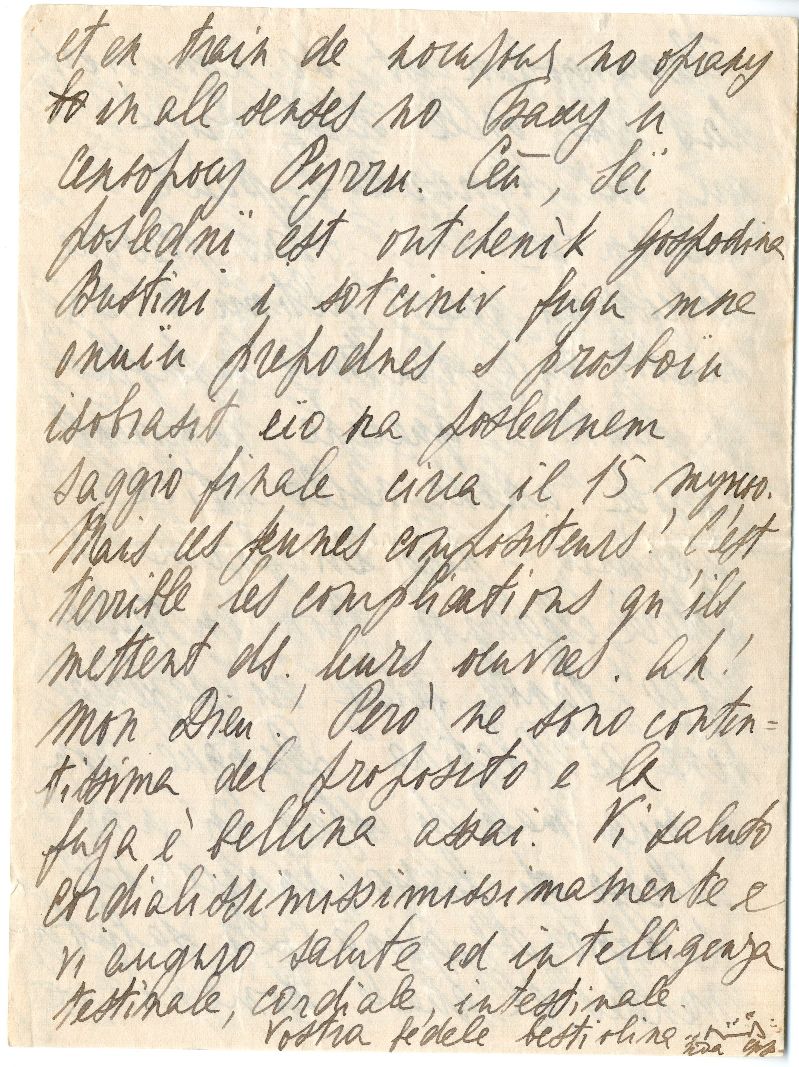 et en train de по органу
to in all senses по Баху и
сенсорому Pyrru. Сей, Seï
posledniï est outchenìk Gospodina
Bustini i sotcinir fuga mne
prepodnes s prosboïu
isobrasit eïo na poslednem
saggio finale circa il 15
Mais ces jeunes compositeurs! C'est
terrible les complications qu'ils
mettent ds. leurs oeuvres. ah!
mon Dieu! Però ne sono conten=
tissima del proposito e la
fuga è bellina assai. Vi saluto
cordialissimissimissimamente e
vi auguro salute ed intelligenza
testinale, cordiale, intestinale.
Vostra fedele bestiolina